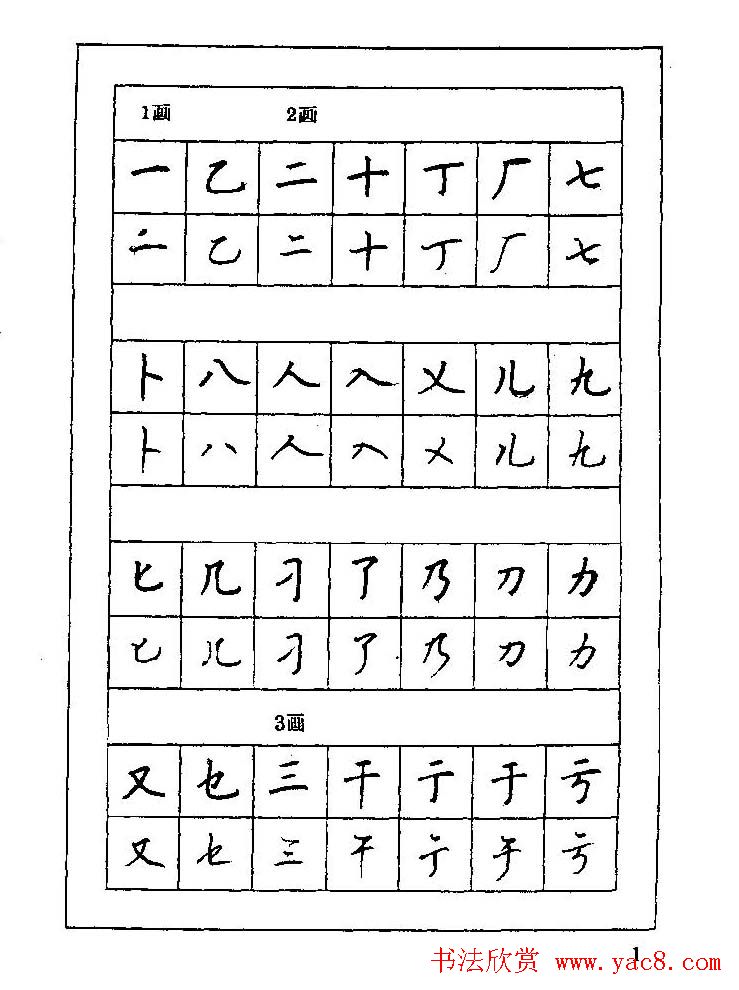 1画 2画
一 乙 二 十 丁 厂 七
一 乙 二 十 丁 厂 七
卜 八 人 入 乂 儿 九
卜 八 人 入 乂 儿 九
匕 几 刁 了 乃 刀 力
匕 几 刁 了 乃 刀 力
3画
又 乜 三 干 亍 于 亏
又 乜 三 干 亍 于 亏
1
书法欣赏 www.yac8.com